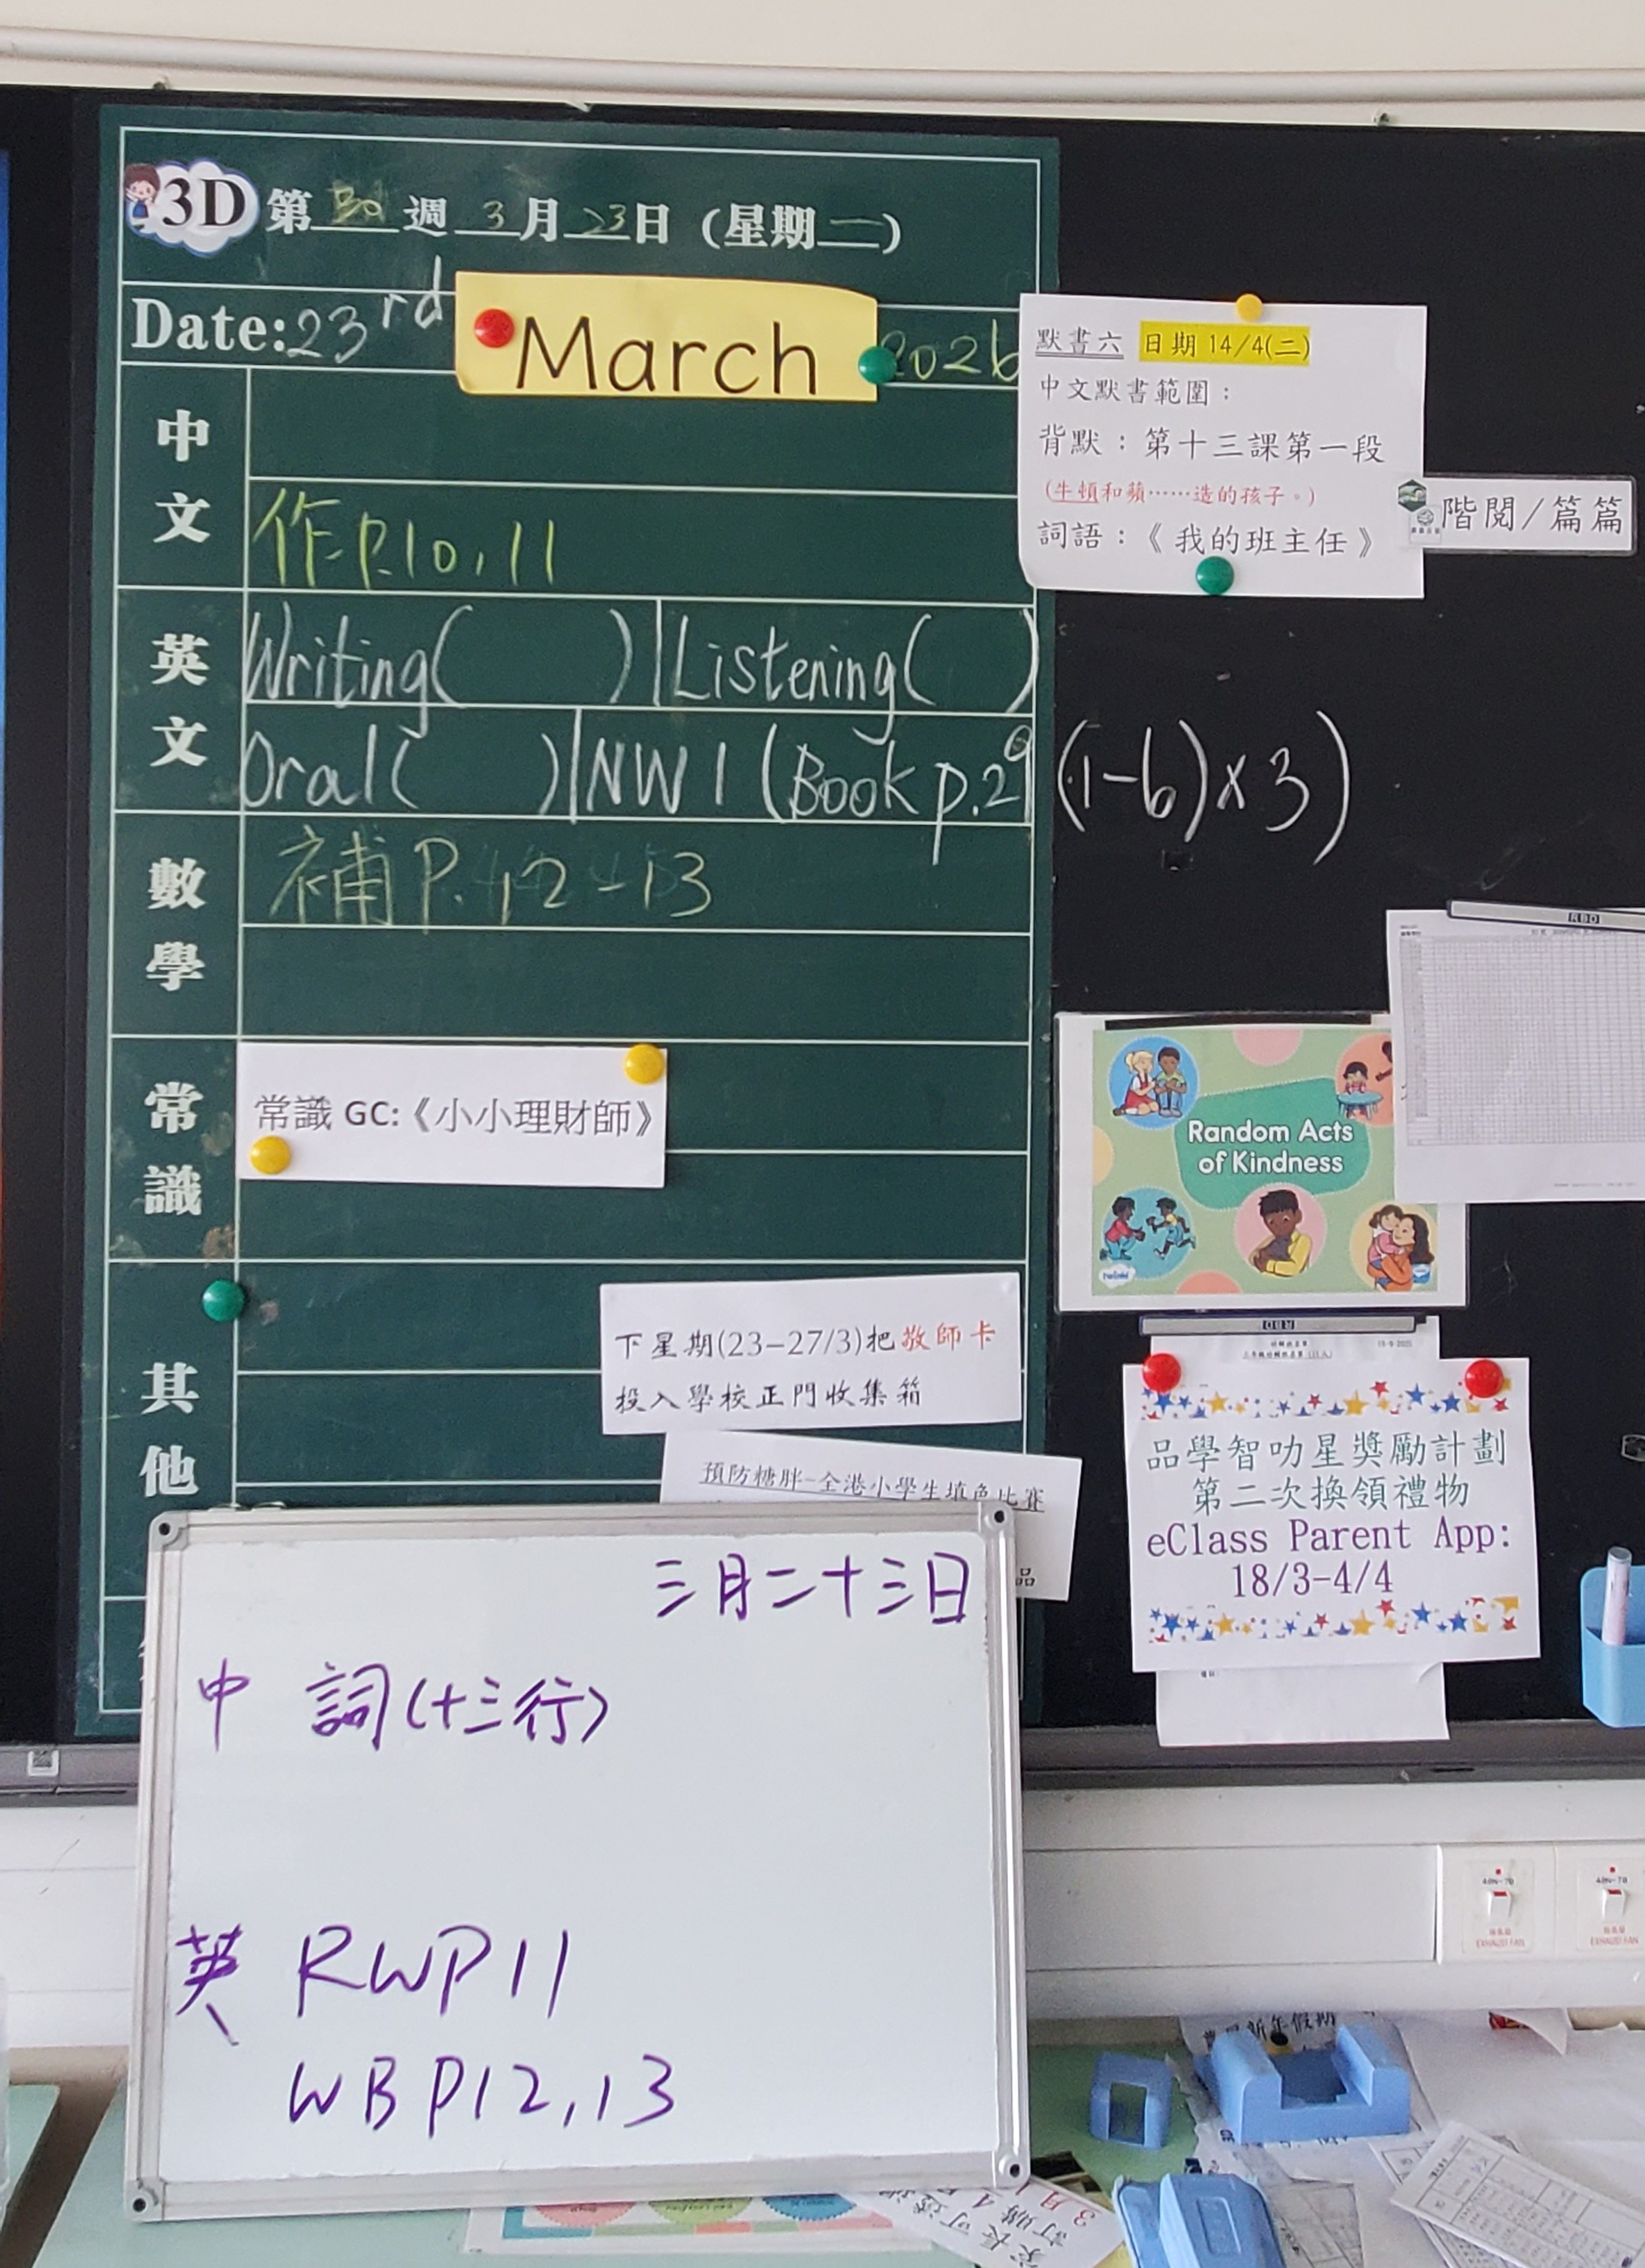 3D 第30週 3月23日 (星期一)
Date: 23rd March 2026
中文
作P.10, 11
英文
Writing( ) | Listening( )
Oral( ) | NW 1 (Book p.29 (1-6)×3)
數學
補P.12-13
常識
常識 GC:《小小理財師》
其他
下星期(23-27/3)把敬師卡
投入學校正門收集箱
預防糖胖-全港小學生填色比賽
品
默書六 日期 14/4(二)
中文默書範圍：
背默：第十三課第一段
(牛頓和蘋……造的孩子。)
詞語：《我的班主任》
階閱/篇篇
RBD
Random Acts
of Kindness
twinkl
品學智叻星獎勵計劃
第二次換領禮物
eClass Parent App:
18/3-4/4
三月二十三日
中 詞(十三行)
英 RWP11
WBP12,13
EXHAUST FAN
EXHAUST FAN